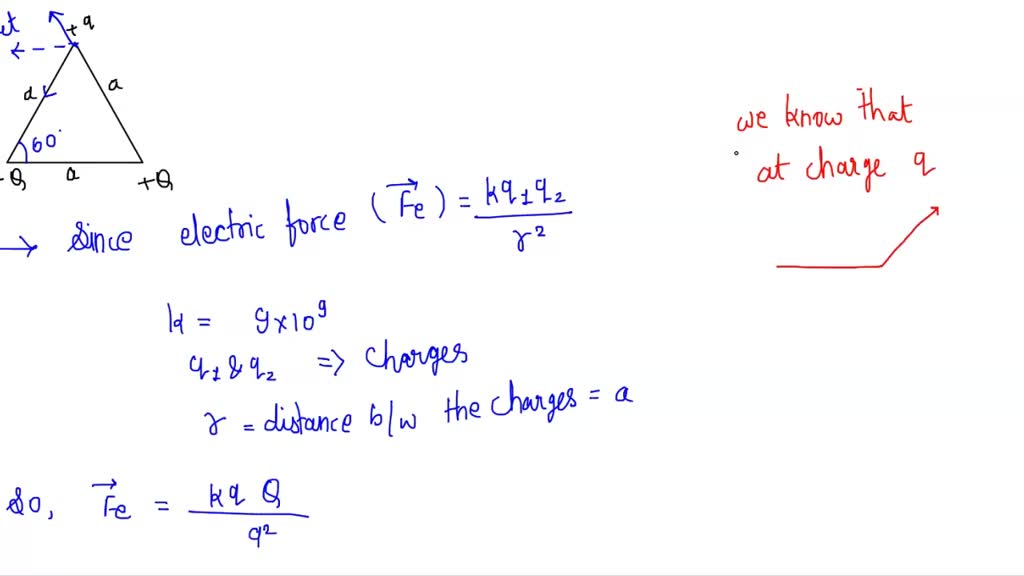 +q
a
a
60°
-Q
a
+Q
we know that
at charge q
→ Since electric force (F⃗e) = kq1q2 / r²
k = 9×10⁹
q1 & q2 => charges
r = distance b/w the charges = a
So, F⃗e = kq Q / a²